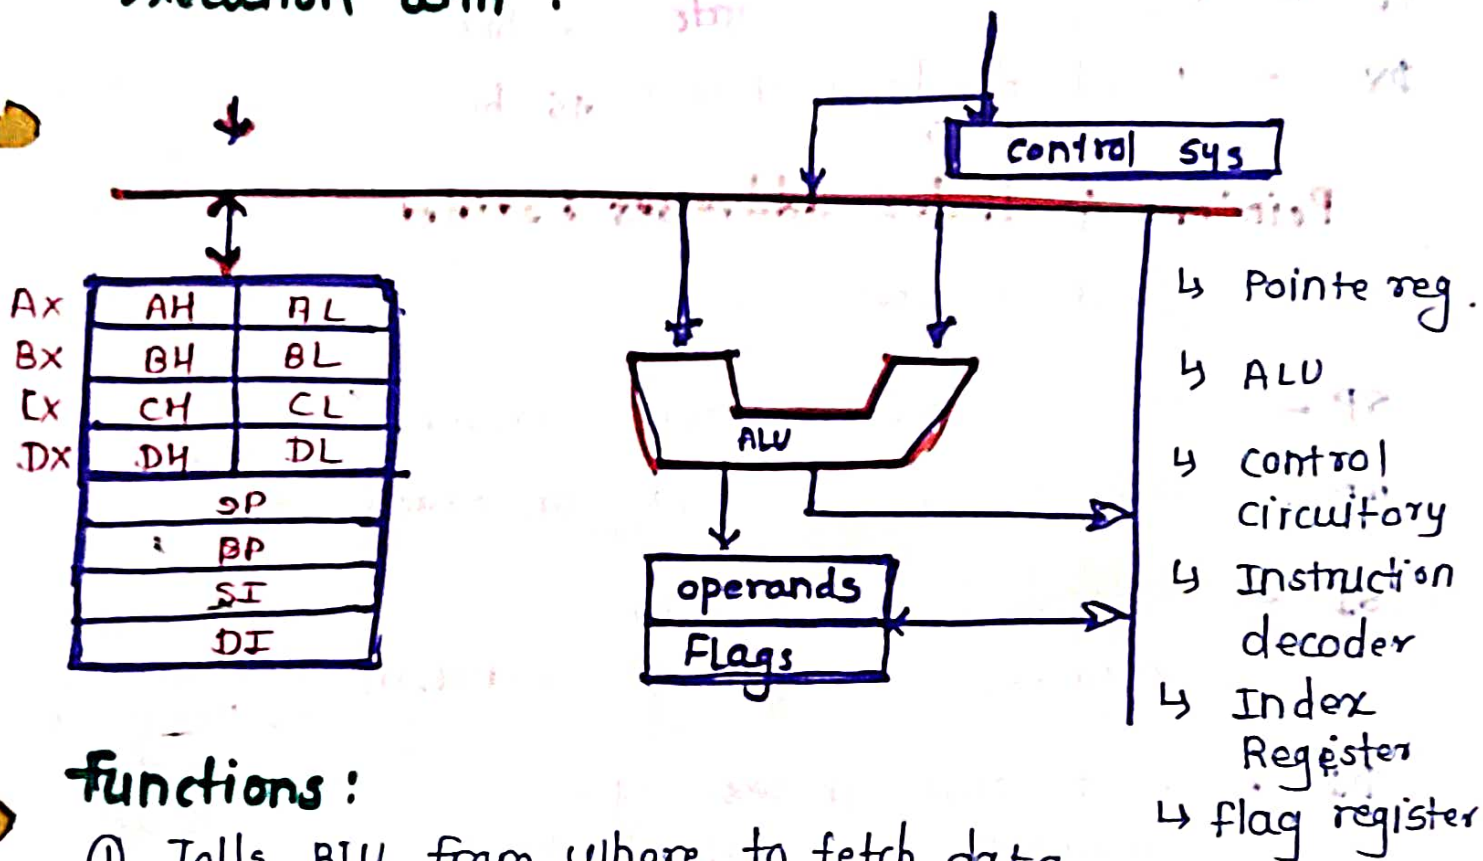 control sys
Ax AH AL
Bx BH BL
Cx CH CL
Dx DH DL
SP
BP
SI
DI
ALU
operands
Flags
↳ Pointe reg.
↳ ALU
↳ control
circuitory
↳ Instruction
decoder
↳ Index
Register
↳ flag register
functions :
① Tells BIU from where to fetch data